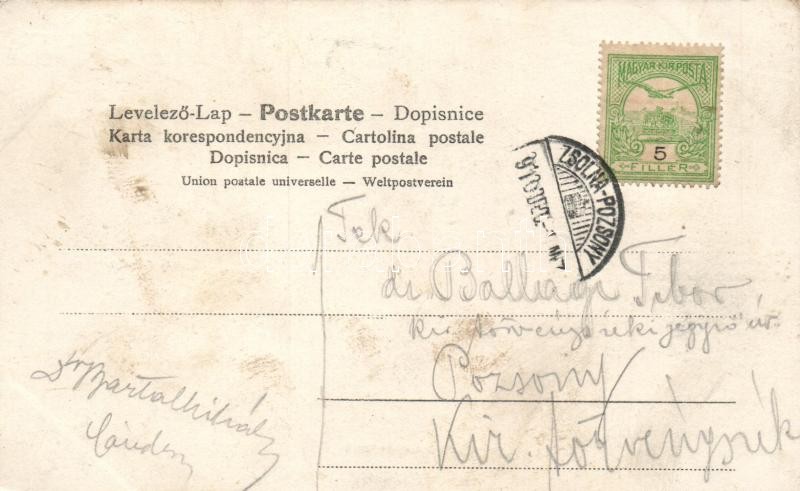 Levelező-Lap – Postkarte – Dopisnice
Karta korespondencyjna – Cartolina postale
Dopisnica – Carte postale
Union postale universelle — Weltpostverein
MAGYAR·KIR·POSTA
5
FILLÉR
ZSOLNA-POZSONY
Tek.
dr Ballagi Tibor
kir. törvényszéki jegyző úr
Pozsony
Kir. törvényszék
Dr Bartal Mihály